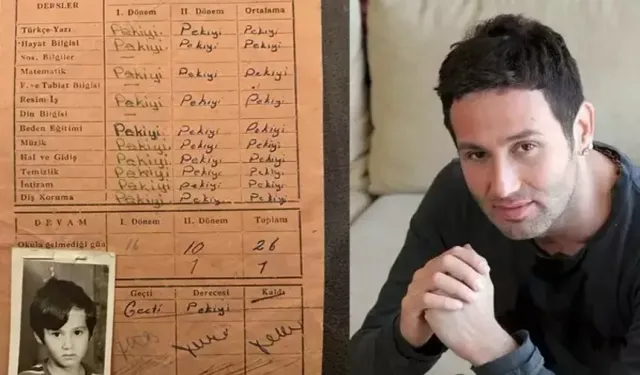 DERSLER I. Dönem II. Dönem Ortalama
Türkçe-Yazı Pekiyi Pekiyi Pekiyi
Hayat Bilgisi Pekiyi Pekiyi Pekiyi
Sos. Bilgiler —
Matematik Pekiyi Pekiyi Pekiyi
F. ve Tabiat Bilgisi —
Resim-İş Pekiyi Pekiyi Pekiyi
Din Bilgisi —
Beden Eğitimi Pekiyi Pekiyi Pekiyi
Müzik Pekiyi Pekiyi Pekiyi
Hal ve Gidiş Pekiyi Pekiyi Pekiyi
Temizlik Pekiyi Pekiyi Pekiyi
İntizam Pekiyi Pekiyi Pekiyi
Diş Koruma Pekiyi Pekiyi Pekiyi
DEVAM I. Dönem II. Dönem Toplam
Okula gelmediği gün 16 10 26
1 1
Geçti Derecesi Kaldı
Geçti Pekiyi